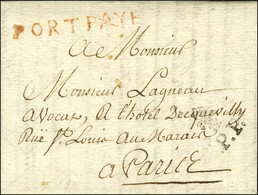 PORT PAYÉ
A Monsieur
Monsieur Lagneau
avocat, a L'hotel Decquevilly
Rüe St. Louis au Marais
a Parice
P.P.